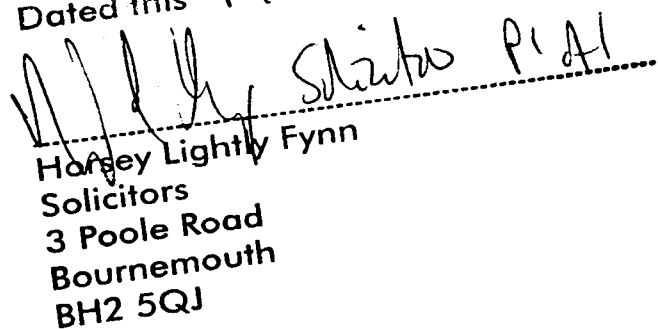 Dated this
Solicitor
Horsey Lightly Fynn
Solicitors
3 Poole Road
Bournemouth
BH2 5QJ